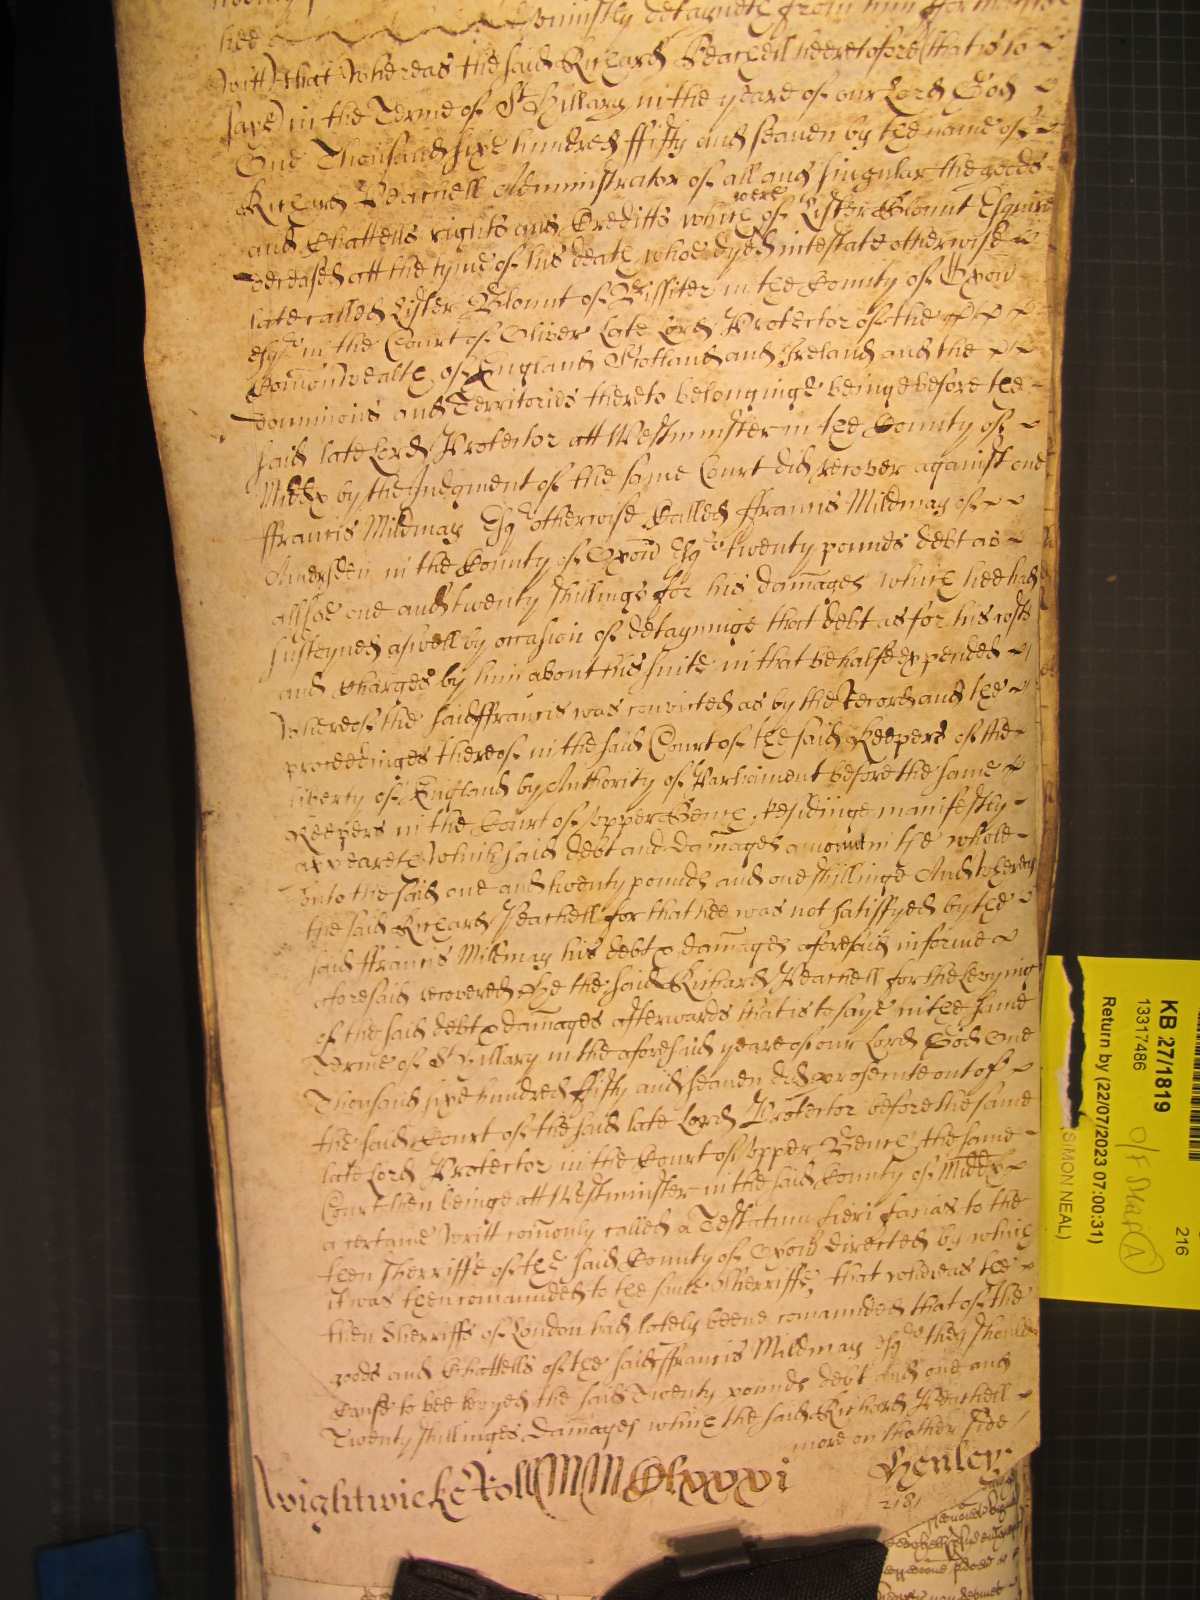 hee uniustly detayneth from him for that
(witt) that Whereas the said Richard Peachell heeretofore (that is to
saye) in the Terme of St Hillary in the yeare of our Lord God
One Thousand sixe hundred ffifty and seaven by the name of
Richard Peachell Administrator of all and singular the goods
and Chattells rights and Creditts which were of Lister Blount Esquire
deceased att the tyme of his death whoe dyed intestate otherwise
late called Lister Blount of Bissiter in the County of Oxon
esqr in the Court of Oliver late Lord Protector of the
Comonwealth of England Scotland and Ireland and the
dominions and Territories thereto belonginge beinge before the
said late Lord Protector att Westminster in the County of
Middx by the Judgment of the same Court did recover against one
ffrancis Mildmay Esqr otherwise Called ffrancis Mildmay of
Amersden in the County of Oxon Esqr twenty pounds debt as
allsoe one and twenty shillings for his damages which hee had
susteyned aswell by occasion of detayninge that debt as for his costs
and Charges by him about his suite in that behalfe expended
Whereof the said ffrancis was convicted as by the Record and the
proceedinges thereof in the said Court of the said Keepers of the
liberty of England by Authority of Parliament before the same
Keepers in the Court of Upper Bench residinge manifestly
appeareth Which said debt and damages amount in the whole
unto the said one and twenty pounds and one shillinge And whereas
the said Richard Peachell for that hee was not satisfyed by the
said ffrancis Mildmay his debt & damages aforesaid in forme
aforesaid recovered Hee the said Richard Peachell for the levyinge
of the said debt & damages afterwards that is to saye in the same
Terme of St Hillary in the aforesaid yeare of our Lord God One
Thousand sixe hundred ffifty and seaven did prosecute out of
the said Court of the said late Lord Protector before the same
late Lord Protector in the Court of Upper Bench the same
Court then beinge att Westminster in the said County of Middx
a certaine Writt comonly called a Testatum fieri facias to the
then Sherriffe of the said County of Oxon directed by which
it was then comanded to the same Sherriffe, that whereas the
then Sherriffs of London had lately beene comanded that of the
goods and Chattells of the said ffrancis Mildmay esqr they should
Cause to bee levyed the said Twenty pounds debt And one and
Twenty shillinges damages which the said Richard Peachell
more on th'other side
Wightwicke Roll MMClxxxi
Henley
2181
KB 27/1819
13317486
Return by (22/07/2023 07:00:31)
(SIMON NEAL)
216